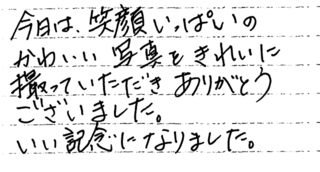 今日は、笑顔いっぱいの
かわいい写真をきれいに
撮っていただきありがとう
ございました。
いい記念になりました。